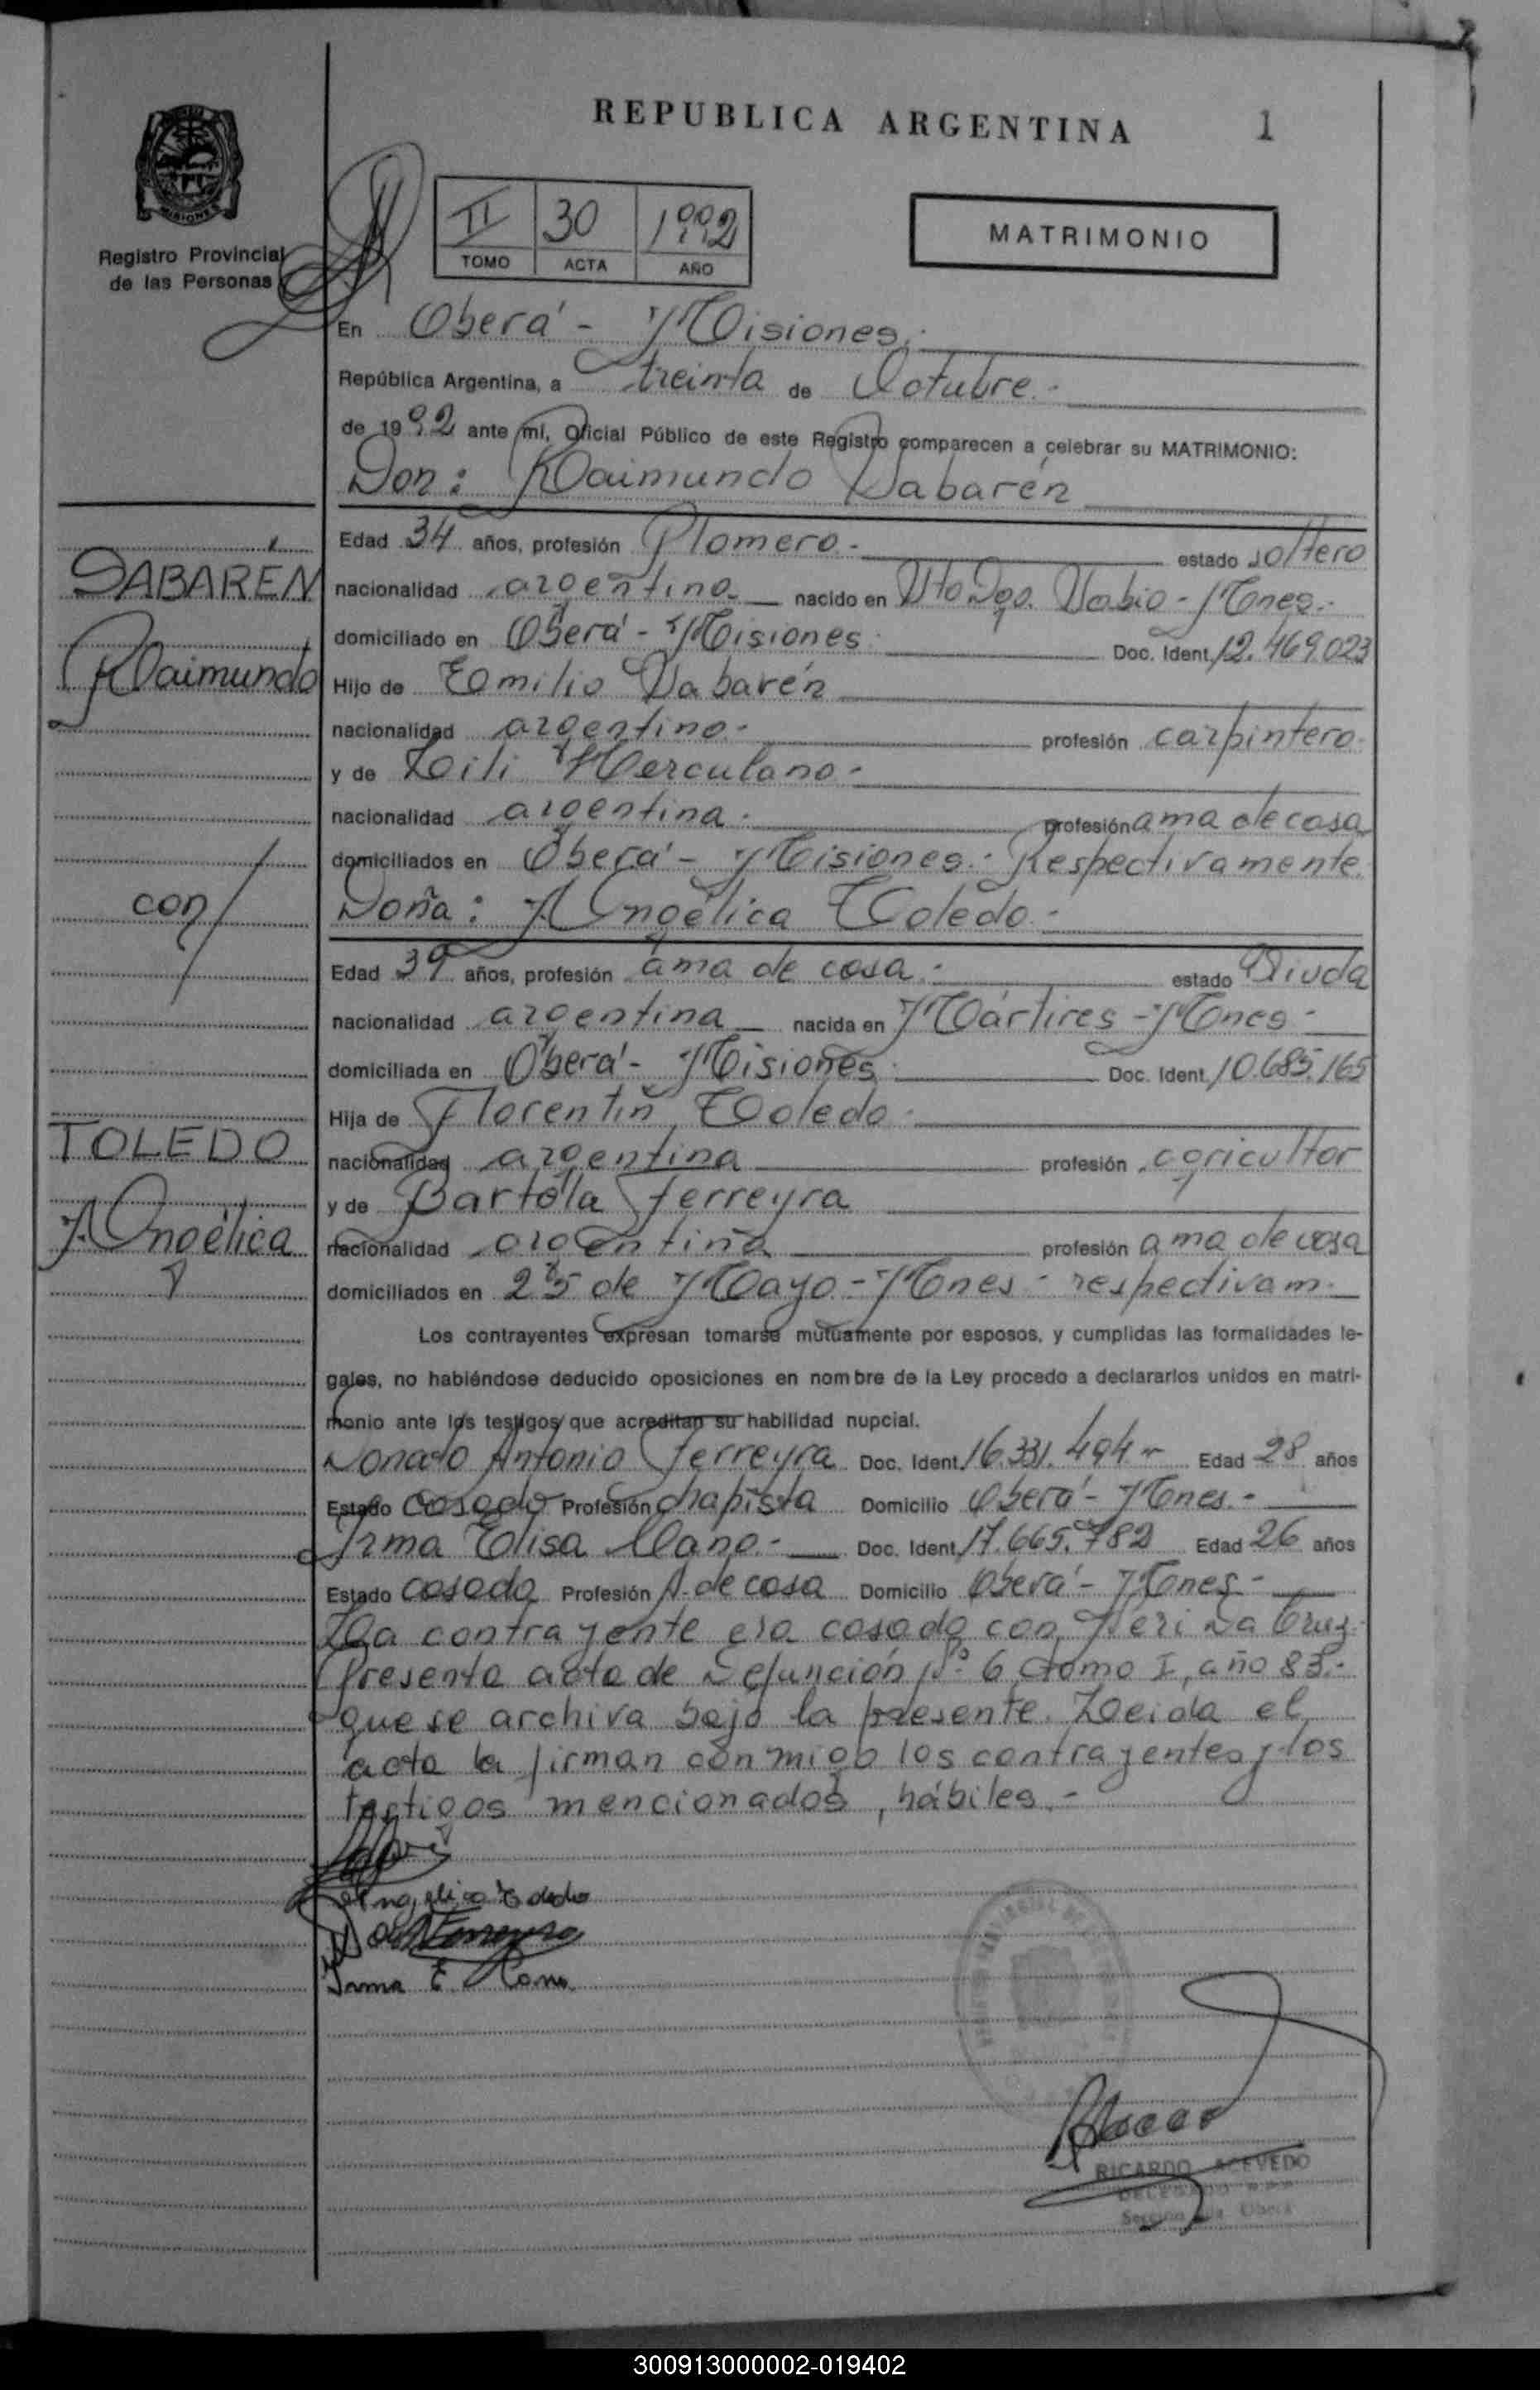 REPUBLICA ARGENTINA
1
MISIONES
Registro Provincial
de las Personas
II 30 1992
TOMO ACTA AÑO
MATRIMONIO
En Oberá - Misiones.
República Argentina, a treinta de Octubre.-
de 1992 ante mí, Oficial Público de este Registro comparecen a celebrar su MATRIMONIO:
Don: Raimundo Sabarén
SABARÉN
Raimundo
con
TOLEDO
Angélica
Edad 34 años, profesión Plomero.- estado soltero
nacionalidad argentino.- nacido en - Mnes.-
domiciliado en Oberá - Misiones. Doc. Ident. 12.469.023
Hijo de Emilio Sabarén
nacionalidad argentino.- profesión carpintero.
y de Herculano.-
nacionalidad argentina.- profesión ama de casa
domiciliados en Oberá - Misiones.- Respectivamente.
Doña: Angélica Toledo.-
Edad 39 años, profesión ama de casa.- estado Viuda
nacionalidad argentina nacida en Mártires - Mnes.-
domiciliada en Oberá - Misiones. Doc. Ident. 10.685.165
Hija de Florentin Toledo.
nacionalidad argentina profesión agricultor
y de Bartola Ferreyra
nacionalidad argentina profesión ama de casa
domiciliados en 25 de Mayo - Mnes - respectivam.
Los contrayentes expresan tomarse mutuamente por esposos, y cumplidas las formalidades le-
gales, no habiéndose deducido oposiciones en nombre de la Ley procedo a declararlos unidos en matri-
monio ante los testigos que acreditan su habilidad nupcial.
Donato Antonio Ferreyra Doc. Ident. 16.331.494 Edad 28 años
Estado casado Profesión chapista Domicilio Oberá - Mnes.-
Irma Elisa Llano.- Doc. Ident. 17.665.782 Edad 26 años
Estado casada Profesión A. de casa Domicilio Oberá - Mnes.-
La contrayente era casada con Neri Da Cruz.
Presenta acta de Defunción Nº 6, tomo I, año 83.-
que se archiva bajo la presente. Leida el
acta la firman conmigo los contrayentes y los
testigos mencionados, hábiles.-
Angelica Toledo
Ferreyra
Irma E. Llano
RICARDO ACEVEDO
300913000002-019402